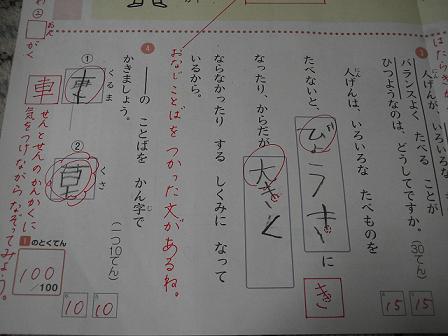 はたらきが
人げんが、いろいろな
バランスよく たべる ことが
ひつようなのは、どうしてですか。(30てん)
人げんは、いろいろな たべものを
たべないと、びょうきに
き
なったり、からだが大きく
ならなかったり する しくみに なって
いるから。
おなじことばを つかった文があるね。
15
15
4
――の ことばを かん字で
かきましょう。
(一つ10てん)
① くるま
車
② くさ
草
10
10
車
せんとせんのかんかくに
気をつけながら なぞってみよう。
1のとくてん
100
/100
がく